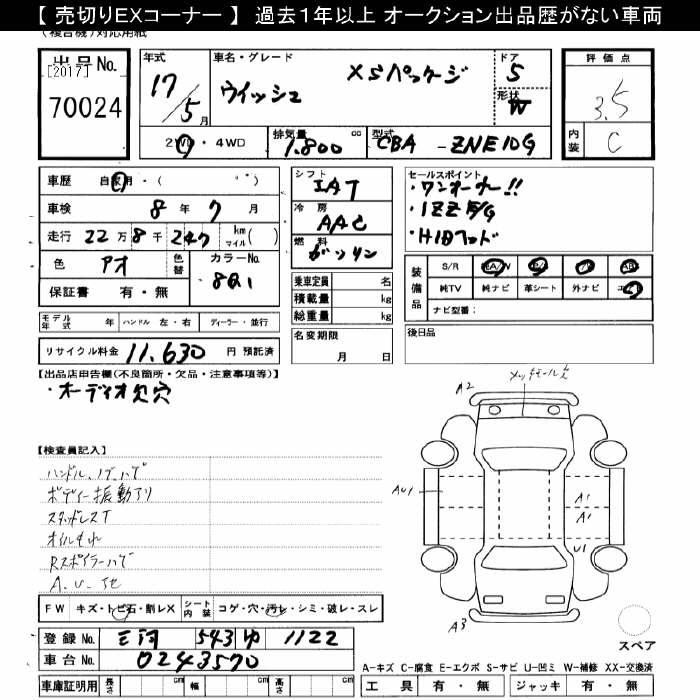 【 売切りEXコーナー 】 過去1年以上 オークション出品歴がない車両
(複合機)対応用紙
出品 No.
[2017]
70024
年式
17/5月
車名・グレード
ウイッシュ XSパッケージ
ドア
5
形状
W
評価点
3.5
内装
C
2WD・4WD
排気量
1.800 cc
型式
CBA - ZNE10G
車歴 自家用・( )
車検 8年 7月
走行 22万 8千 247 km マイル( )
色 アオ
色替
カラーNo. 8Q1
保証書 有・無
シフト
IAT
冷房
AAC
燃料
ガソリン
セールスポイント
・ワンオーナー!!
・1ZZ E/G
・HIDヘッド
装備品
S/R
純TV 純ナビ 革シート 外ナビ
ナビ型番:
乗車定員 名
積載量 kg
総重量 kg
モデル年式 年 ハンドル 左・右 ディーラー・並行
名変期限
月 日
後日品
リサイクル料金 11,630 円 預託済
【出品店申告欄(不良箇所・欠品・注意事項等)】
・オーディオ欠穴
メッキモール欠
A2
【検査員記入】
ハンドル、ノブ ハゲ
ボディー振動アリ
スタッドレスT
オイルもれ
Rスポイラーハゲ
A.U.他
AU1
A1
A1
U1
A3
FW キズ・トビ石・割レX シート内装 コゲ・穴・汚レ・シミ・破レ・スレ
登録 No. 三河 543 ゆ 1122
車台 No. 0243570
スペア
A-キズ C-腐食 E-エクボ S-サビ U-凹ミ W-補修 XX-交換済
車庫証明用 長さ cm 幅 cm 高さ cm
工具 有・無 ジャッキ 有・無